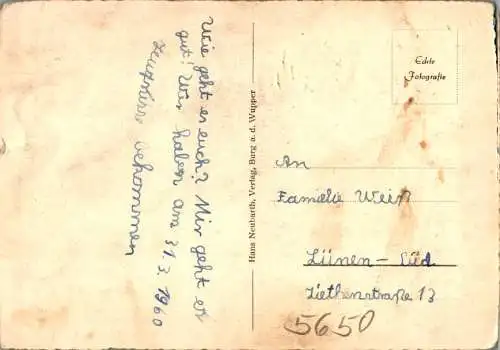 Wie geht es euch? Mir geht es
gut! Wir haben am 31.3.1960
Zeugnisse bekommen
Hans Neubarth, Verlag, Burg a. d. Wupper
Echte
Fotografie
An
Familie Weiß
Lünen – Süd
Ziethenstraße 13
5650